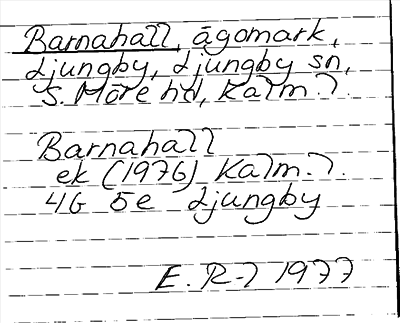 Barnahall, ägomark,
Ljungby, Ljungby sn,
S. Möre hd, Kalm. l.
Barnahall
ek (1976) Kalm. l.
4G 5e Ljungby
E. R-l 1977